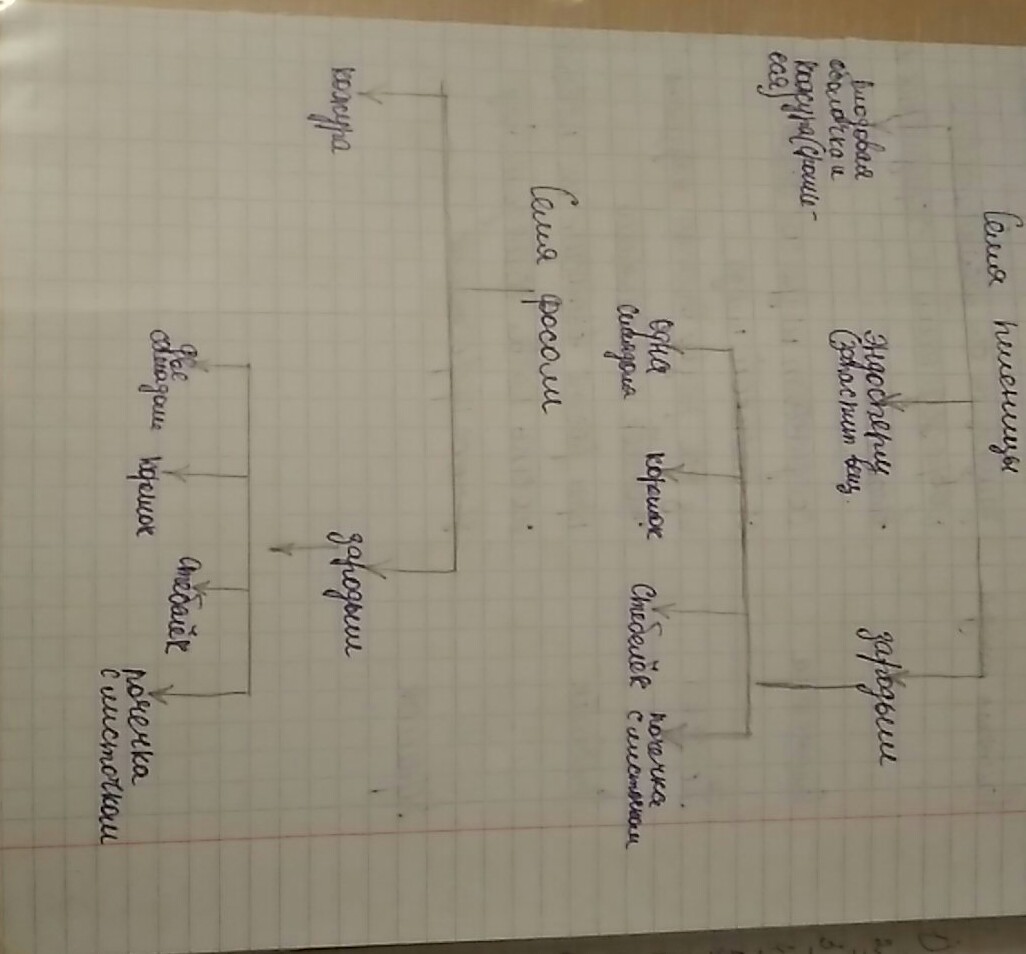 Семя пшеницы
плодовая
оболочка и
кожура (сросше-
еся)
Эндосперм
(запас пит вещ.
зародыш
одна
семядоля
корешок
Стебелёк
почечка
с листочком
Семя фасоли
кожура
зародыш
две
семядоли
корешок
стебелёк
почечка
с листочком